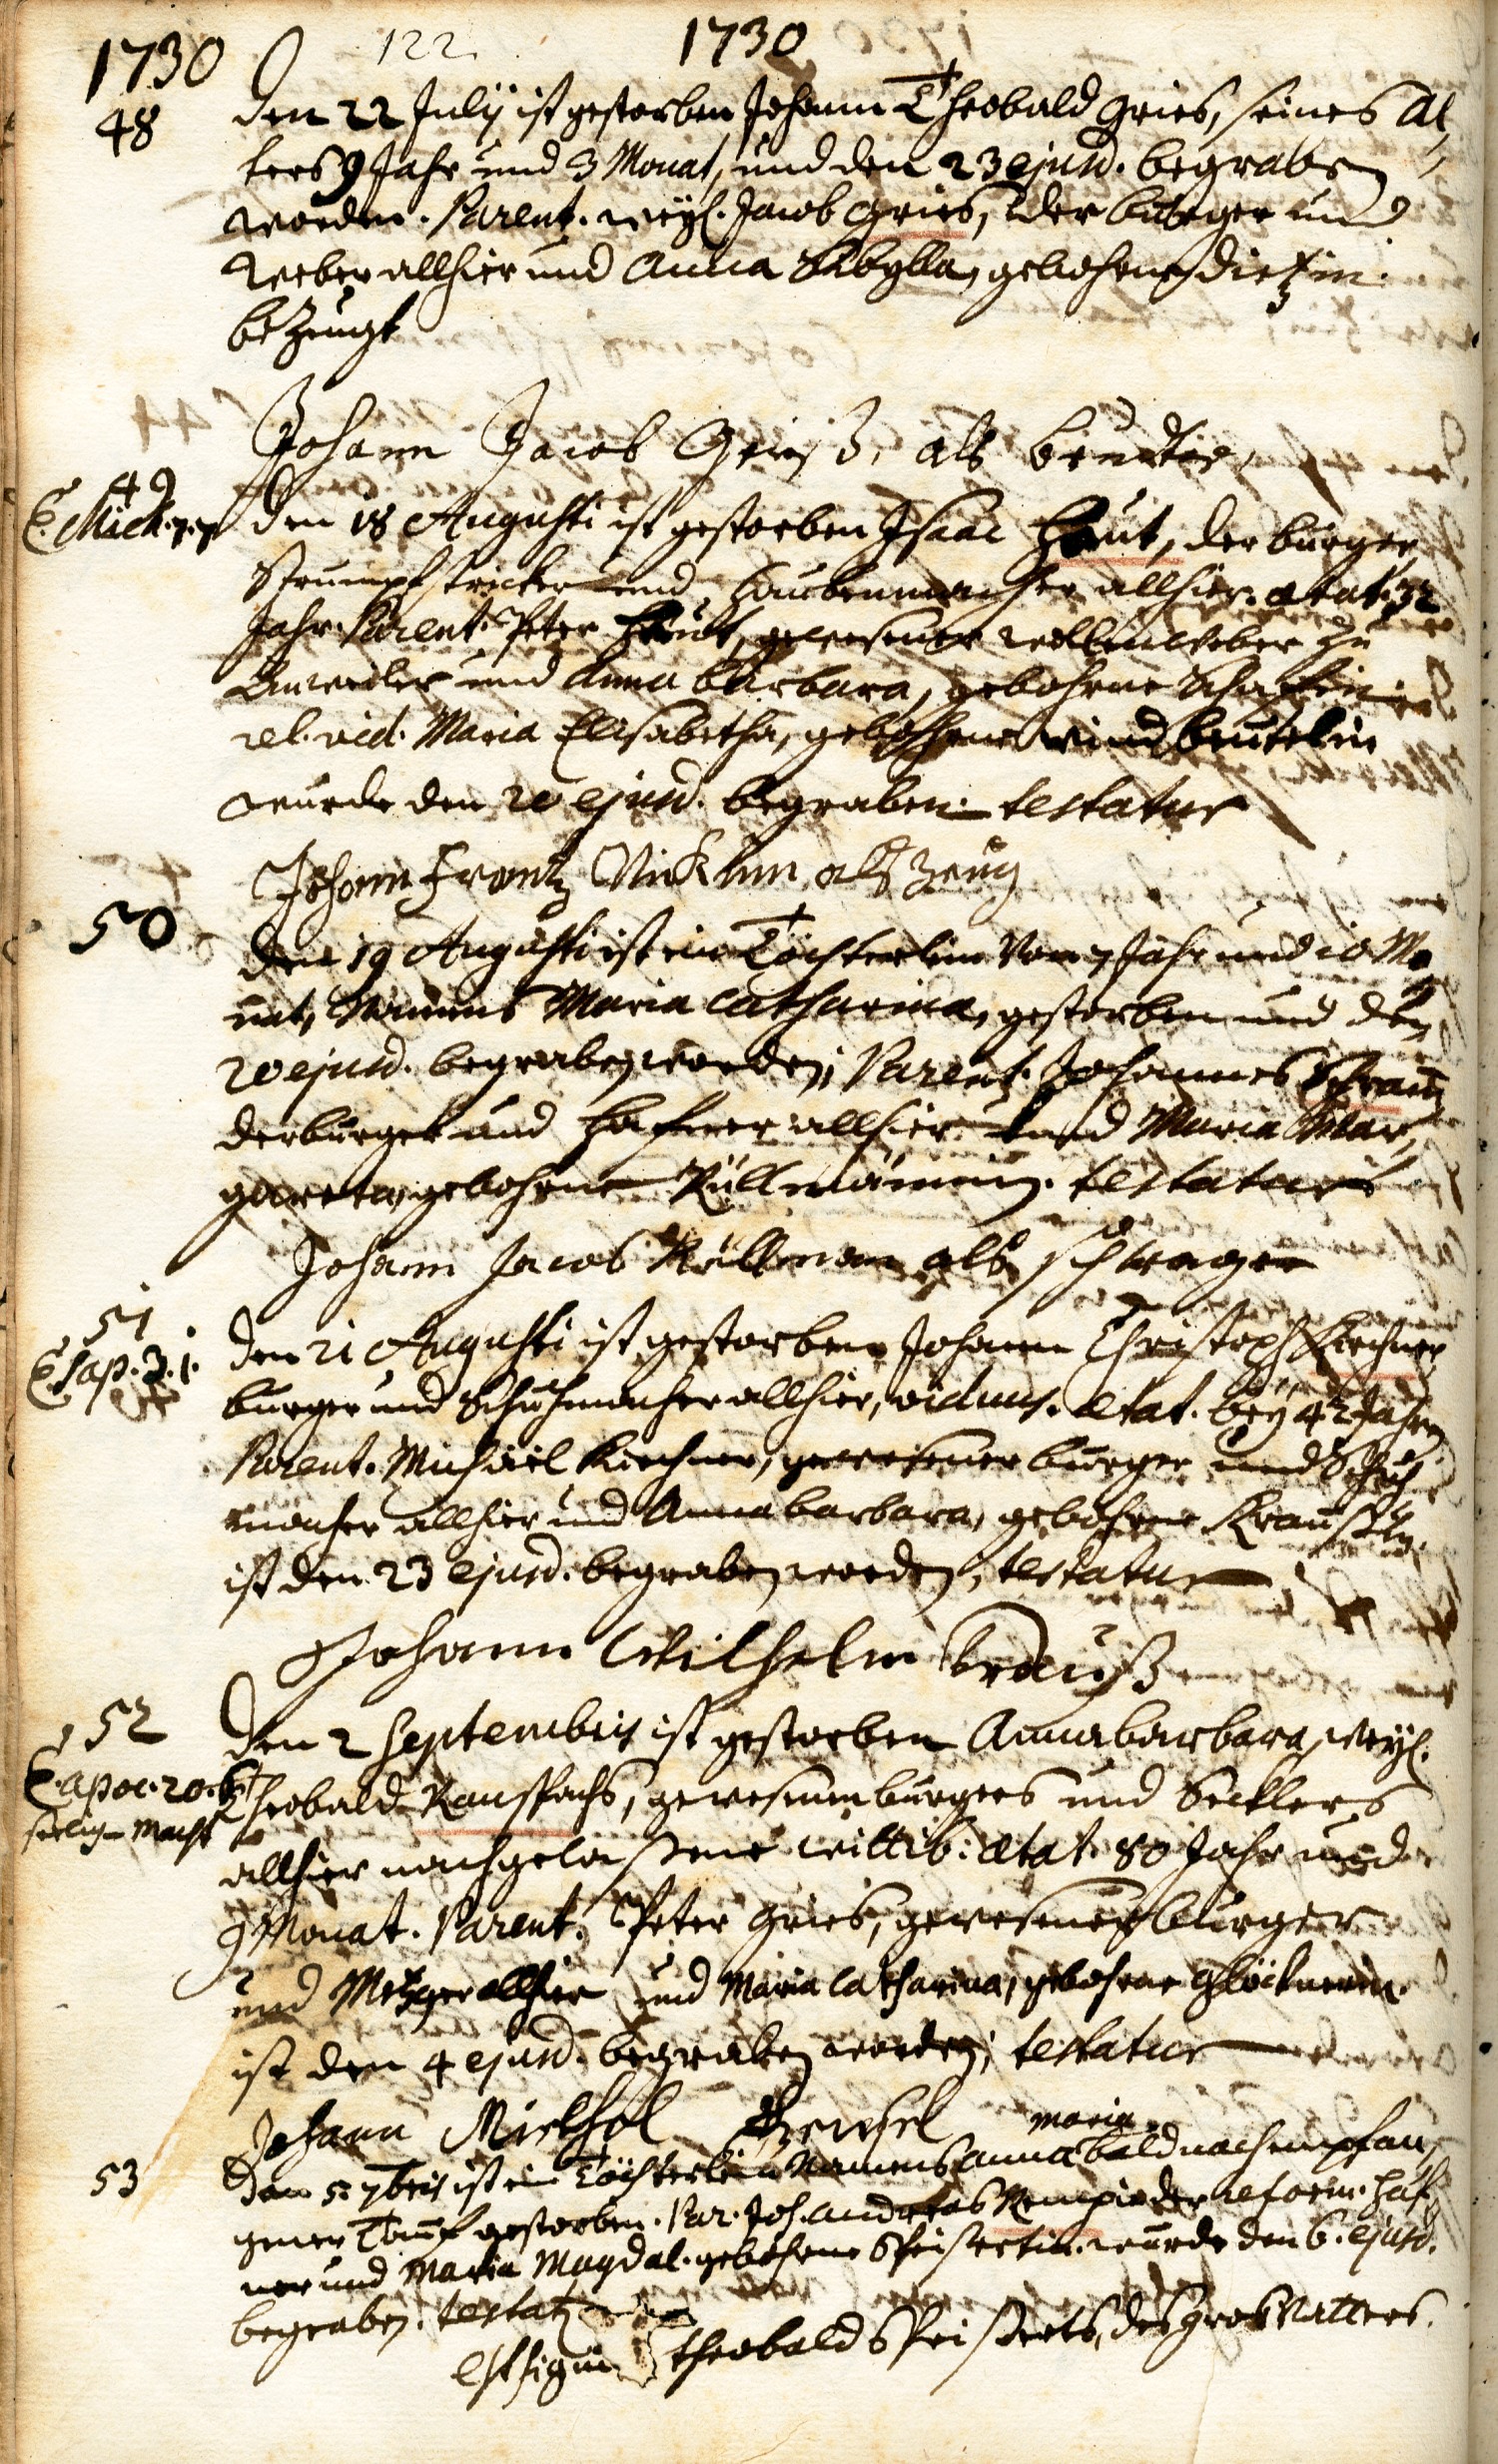 1730 122 1730
48 Den 22 Julij ist gestorben Johann Theobald Gries, seines Al,
ters 9 Jahr und 3 Monat, und den 23 ejusd. begraben
worden. Parent. weyl. Jacob Gries, der burger und
Weber allhier und Anna Sibylla, gebohrne Dietzin.
bezeugt
Johann Jacob Grieß, als bruder
49 Den 18 Augusti ist gestorben Isaac Haut, der burger
E. Mich. 7. 7
Strumpfstricker und Haubenmacher allhier. ætat. 32
Jahr. Parent. Peter Haut, gewesener wollenweber zu
Anweiler und Anna Barbara, gebohrne Schaferin.
rel. vid. Maria Elisabetha, gebohrne Windbeutelin
wurde den 20 ejusd. begraben. testatur
Johann Frantz als Zeug
50 Den 19 Augusti ist ein Töchterlein von 7 Jahr und 10 Mo,
nat, Namens Maria Catharina, gestorben und den
20 ejusd. begraben worden; Parent. Johannes
der burger und Hafner allhier und Maria Mar,
gareta, gebohrne Küllmännin. testatur
Johann Jacob Küllman als schwager
51 Den 21 Augusti ist gestorben Johann Christoph Kirchner
E. Sap. 3. 1.
burger und Schuhmacher allhier, viduus. ætat. bey 42 Jahren
Parent. Michael Kirchner, gewesener burger und Schuh
macher allhier und Anna barbara, gebohrne Kraußin.
ist den 23 ejusd. begraben worden, testatur
Johann Wilhelm Krauß
52 Den 2 Septembris ist gestorben Anna barbara, weyl.
E. apoc. 20. 6.
Theobald Ranspachs, gewesenen burgers und Secklers
seelig macht
allhier nachgelaßene wittib: ætat. 80 Jahr und
9 Monat. Parent. Peter Gries, gewesener burger
und Metzger allhier und Maria Catharina, gebohrne Glöcknerin.
ist den 4 ejusd. begraben worden; testatur
Johann Michel
maria
53 Den 5. 7bris ist ein Töchterlein Namens Anna bald nach empfan,
gener Tauf gestorben. Par. Joh. Andreas der reform. Haf,
ner und Maria Magdal. gebohrne Speisertin. wurde den 6. ejusd.
begraben. testatr
est signum Theobald Speißerts, des großvatters.